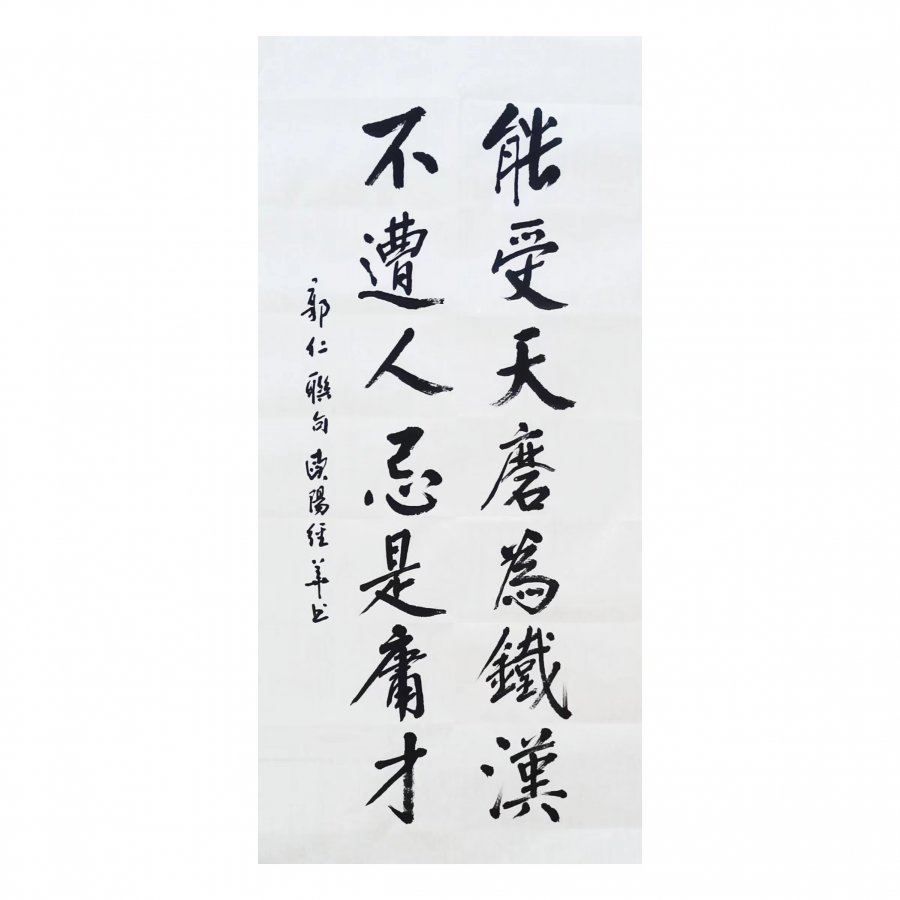 能受天磨為鐵漢
不遭人忌是庸才
郭仁聯句歐陽經羊书